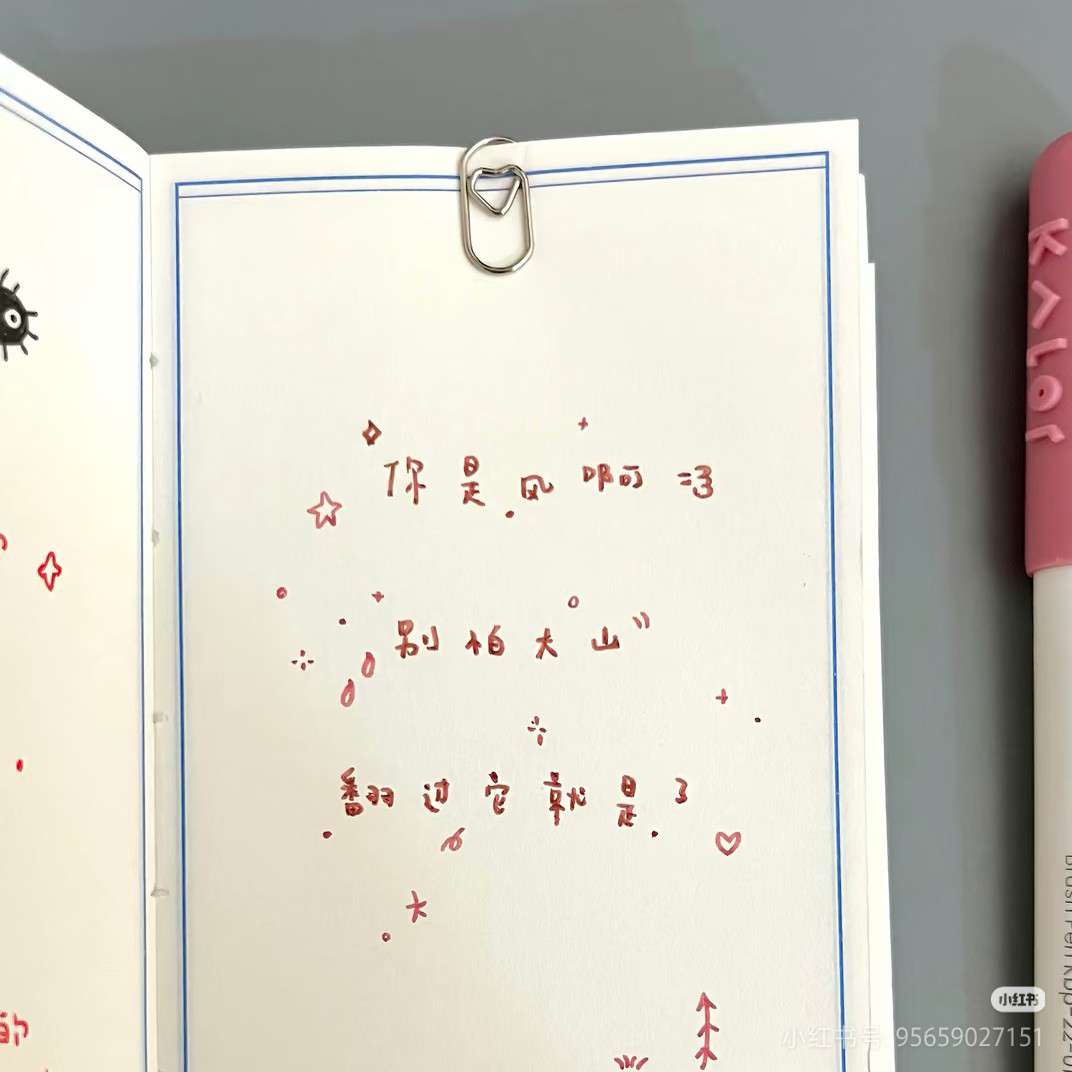 你是风啊 =3
别怕大山
翻过它就是了
的
KALOr
小红书
小红书号 95659027151